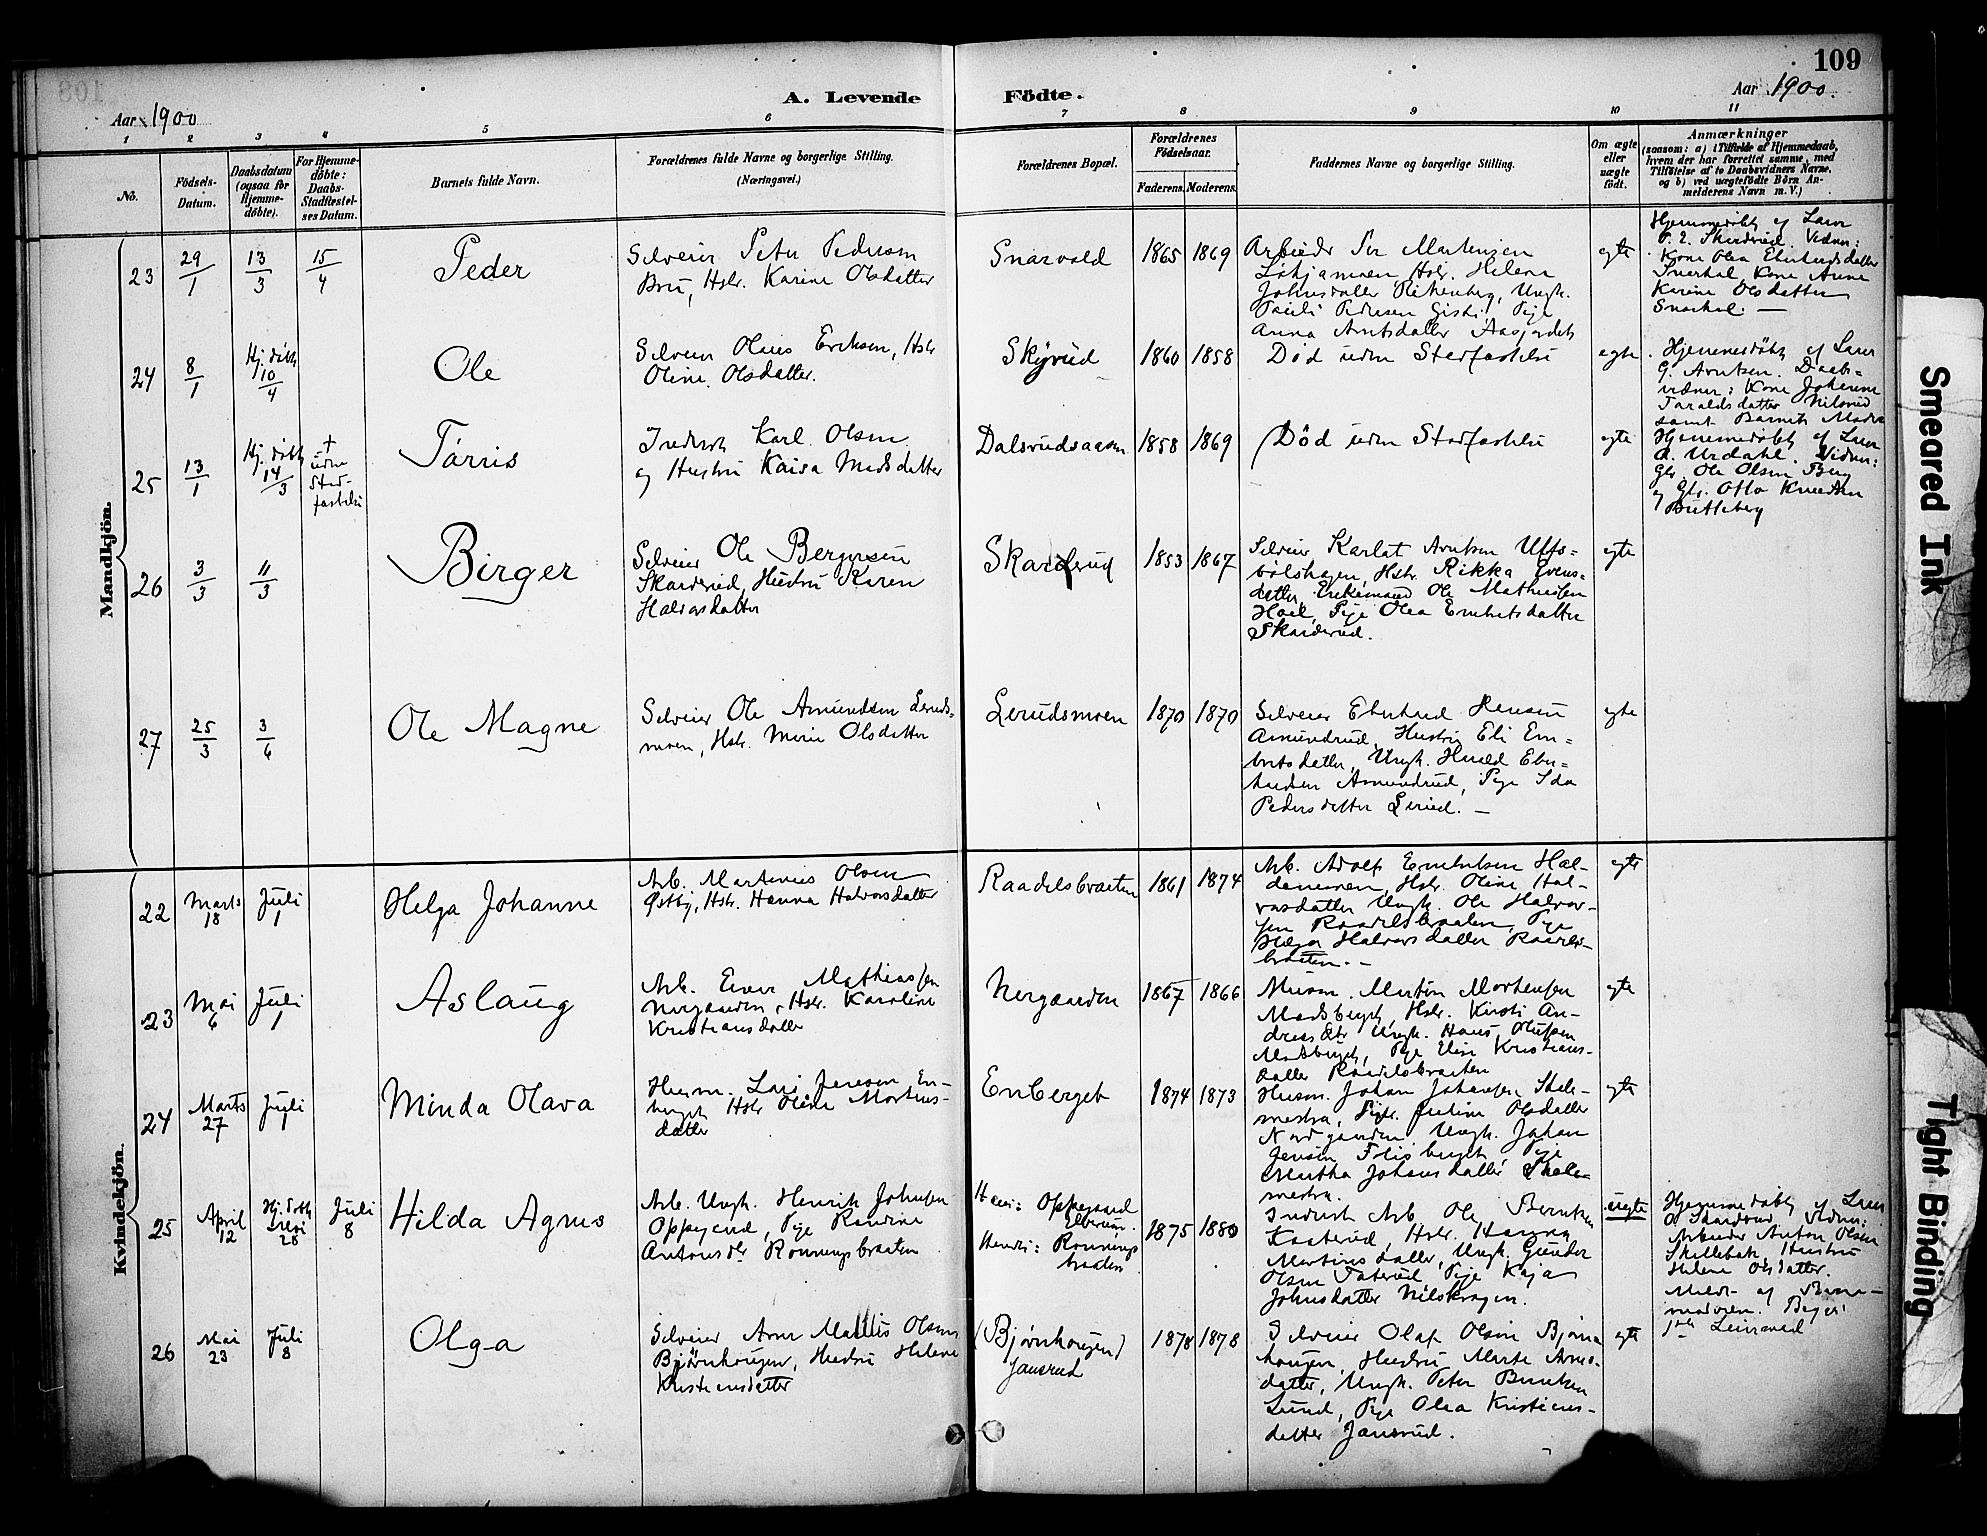 109
A. Levende Födte.
Aar 1900
Aar 1900.
1 2 3 4 5 6 7 8 9 10 11
No.
Födsels-
Datum.
Daabsdatum
(ogsaa for
Hjemme-
döbte).
For Hjemme-
döbte:
Daabs-
Stadfæstel-
ses Datum.
Barnets fulde Navn.
Forældrenes fulde Navne og borgerlige Stilling.
(Næringsvei.)
Forældrenes Bopæl.
Forældrenes
Födselsaar.
Faderens. Moderens.
Faddernes Navne og borgerlige Stilling.
Om ægte
eller
uægte
födt.
Anmærkninger
(saasom: a) i Tilfælde af Hjemmedaab,
hvem der har forrettet samme, med
Tilföielse af to Daabsvidners Navne,
og b) ved uægtefödte Börn An-
melderens Navn m. V.)
Mandkjön.
23
29/1
13/3
15/4
Peder
Selveier Peter Pedersen
Bru, Hstr. Karine Olsdatter
Snarvold
1865 1869
Arbeider Per Martensen
Hstr. Helene
Johnsdatter Ungk.
Pauli Pedersen Pige
Anna Arntsdatter
egte
Hjemmedøbt af Lærer
P. E. Skarderud. Vidner:
Kone Olea
Kone Anne
Karine Olsdatter
24
8/1
Hj. døbt
10/4
Ole
Selveier Olaus Eriksen, Hstr
Oline Olsdatter.
Skyrud
1860 1858
Død uden Stadfæstelse
egte
Hjemmedøbt af Lærer
G. Arntsen. Daabs-
vidner: Kone Johanne
Taraldsdatter Nilsrud
samt Barnets Moder
25
13/1
Hj. døbt
14/3
†
uden
Stad-
fæstelse
Tarris
Inderst Karl Olsen
og Hustru Kaisa Madsdatter
Dalsrudsaasen
1858 1869
Død uden Stadfæstelse
egte
Hjemmedøbt af Lærer
A. Urdahl. Vidner:
Gbr. Ole Olsen Berg
og Gbr. Otto Knudsen
Butteberg
26
3/3
11/3
Birger
Selveier Ole Bergersen
Skarderud, Hustru Karen
Halvorsdatter
Skarderud
1853 1867
Selveier Karlot Arntsen Ulfs-
bølshagen, Hstr. Rikka Evens-
datter, Enkemand Ole Mathiesen
Hoel, Pige Olea Embretsdatter
Skarderud.
egte
27
25/3
3/6
Ole Magne
Selveier Ole Amundsen Lerruds-
moen, Hstr. Marie Olsdatter
Lerudsmoen
1870 1870
Selveier Eberhard Hansen
Amundrud, Hustru Eli Em-
bretsdatter, Ungk. Harald Eber-
hardsen Amundrud, Pige Ida
Pedersdatter Lerud. —
egte
Kvindekjön.
22
Marts
18
Juli
1
Helga Johanne
Arb. Martinius Olsen
Østby, Hstr. Hanna Halvorsdatter
Raadelsbraaten
1861 1874
Arb. Adolf Embretsen Hal-
Hstr. Oline Hal-
vorsdatter Ungk. Ole Halvor-
sen Raadelsbraaten, Pige
Helga Halvorsdatter Raadels-
braaten. —
egte
23
Mai
6
Juli
1
Aslaug
Arb. Einar Mathiassen
Nergaarden, Hstr. Karoline
Kristiansdatter
Nergaarden
1867 1866
Musm. Martin Mortensen
Madsbryet, Hstr. Kirsti An-
dreasdtr Ungk. Hans Olufsen
Madsbryet, Pige Elise Kristians-
datter Raadelsbraaten
egte
24
Marts
27
Juli
1
Minda Olava
Husm. Lars Jensen En-
berget Hstr Oline Martins-
datter
Enberget
1874 1873
Husm. Johan Johansen Skole-
mestra, Pige Juline Olsdatter
Nordgaarden, Ungk. Johan
Jensen Flisbryet Pige
Martha Johansdatter Skole-
mestra.
egte
25
April
12
Hj. døbt
28
Juli
8
Hilda Agnes
Arb. Ungk. Henrik Johnsen
Oppegaard, Pige Randine
Antonsdtr Rønningsbraaten
Hans: Oppegaard
Elverum.
Hendes: Rønnings-
braaten
1875 1880
Inderst Arb Ole Berntsen
Kaaterud, Hstr. Hanna
Martinsdatter, Ungk. Gunder
Olsen Taterud, Pige Kaja
Johnsdatter Nilskrogen.
uegte
Hjemmedøbt af Lærer
O. Skarderud Vidner:
Arbeider Anton Olsen
Skillebæk, Hustru
Helene Olsdatter.
Meldt af
26
Mai
23
Juli
8
Olga
Selveier Arne Mathis Olsen
Bjørnhougen, Hustru Helene
Kristiansdatter
(Bjørnhougen)
Jansrud
1878 1878
Selveier Olaf Olsen Bjørn-
hougen, Hustru Marte Arnes-
datter, Ungk. Peter Berntsen
Lund, Pige Olea Kristians-
datter Jansrud.
egte
Smeared Ink
Tight Binding